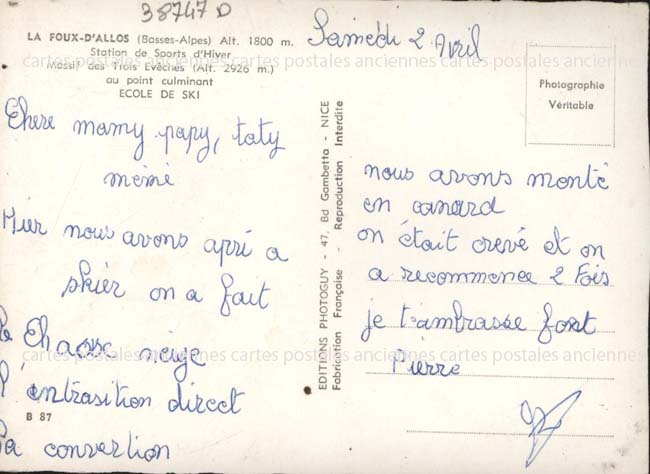 38747 D
LA FOUX-D'ALLOS (Basses-Alpes) Alt. 1800 m.
Station de Sports d'Hiver
cartes postales anciennes cartes postales anciennes cartes postales anciennes
Massif des Trois Evêchés (Alt. 2926 m.)
au point culminant
ECOLE DE SKI
Samedi 2 Avril
Photographie
Véritable
Chere mamy papy, taty
mémé
Hier nous avons apri a
skier on a fait
le Chasse neige
l'entrasition direct
la convertion
B 87
EDITIONS PHOTOGUY - 47, Bd Gambetta - NICE
Fabrication Française - Reproduction Interdite
nous avons monté
en canard
on était crevé et on
a recommence 2 Fois
je t'ambrasse fort
Pierre
cartes postales anciennes cartes postales anciennes cartes postales anciennes